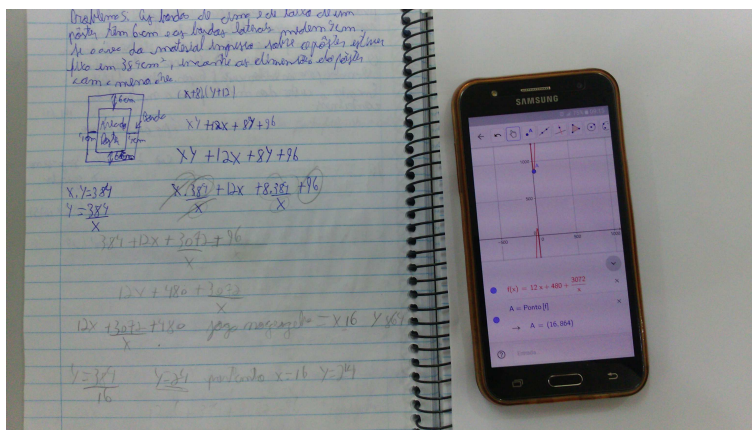 Problema 5: As bordas de cima e de baixo de um
pôster têm 6cm e as bordas laterais medem 4cm.
Se a area do material impresso sobre o pôster estiver
fixo em 384cm², encontre as dimensões do pôster
com a menor área
6cm
Borda
4cm
4cm
6cm
(x+8).(Y+12)
XY+12x+8Y+96
XY+12x+8Y+96
X.Y=384
Y=384
X
X.384+12x+8.384+96
X X
384+12x+3072+96
X
12x+480+3072
X
12x+3072+480
X
= X16 Y864
Y=384
16
Y=24
portanto x=16 Y=24
SAMSUNG
f(x) = 12x + 480 + 3072
x
A = Ponto(f)
→ A = (16, 864)